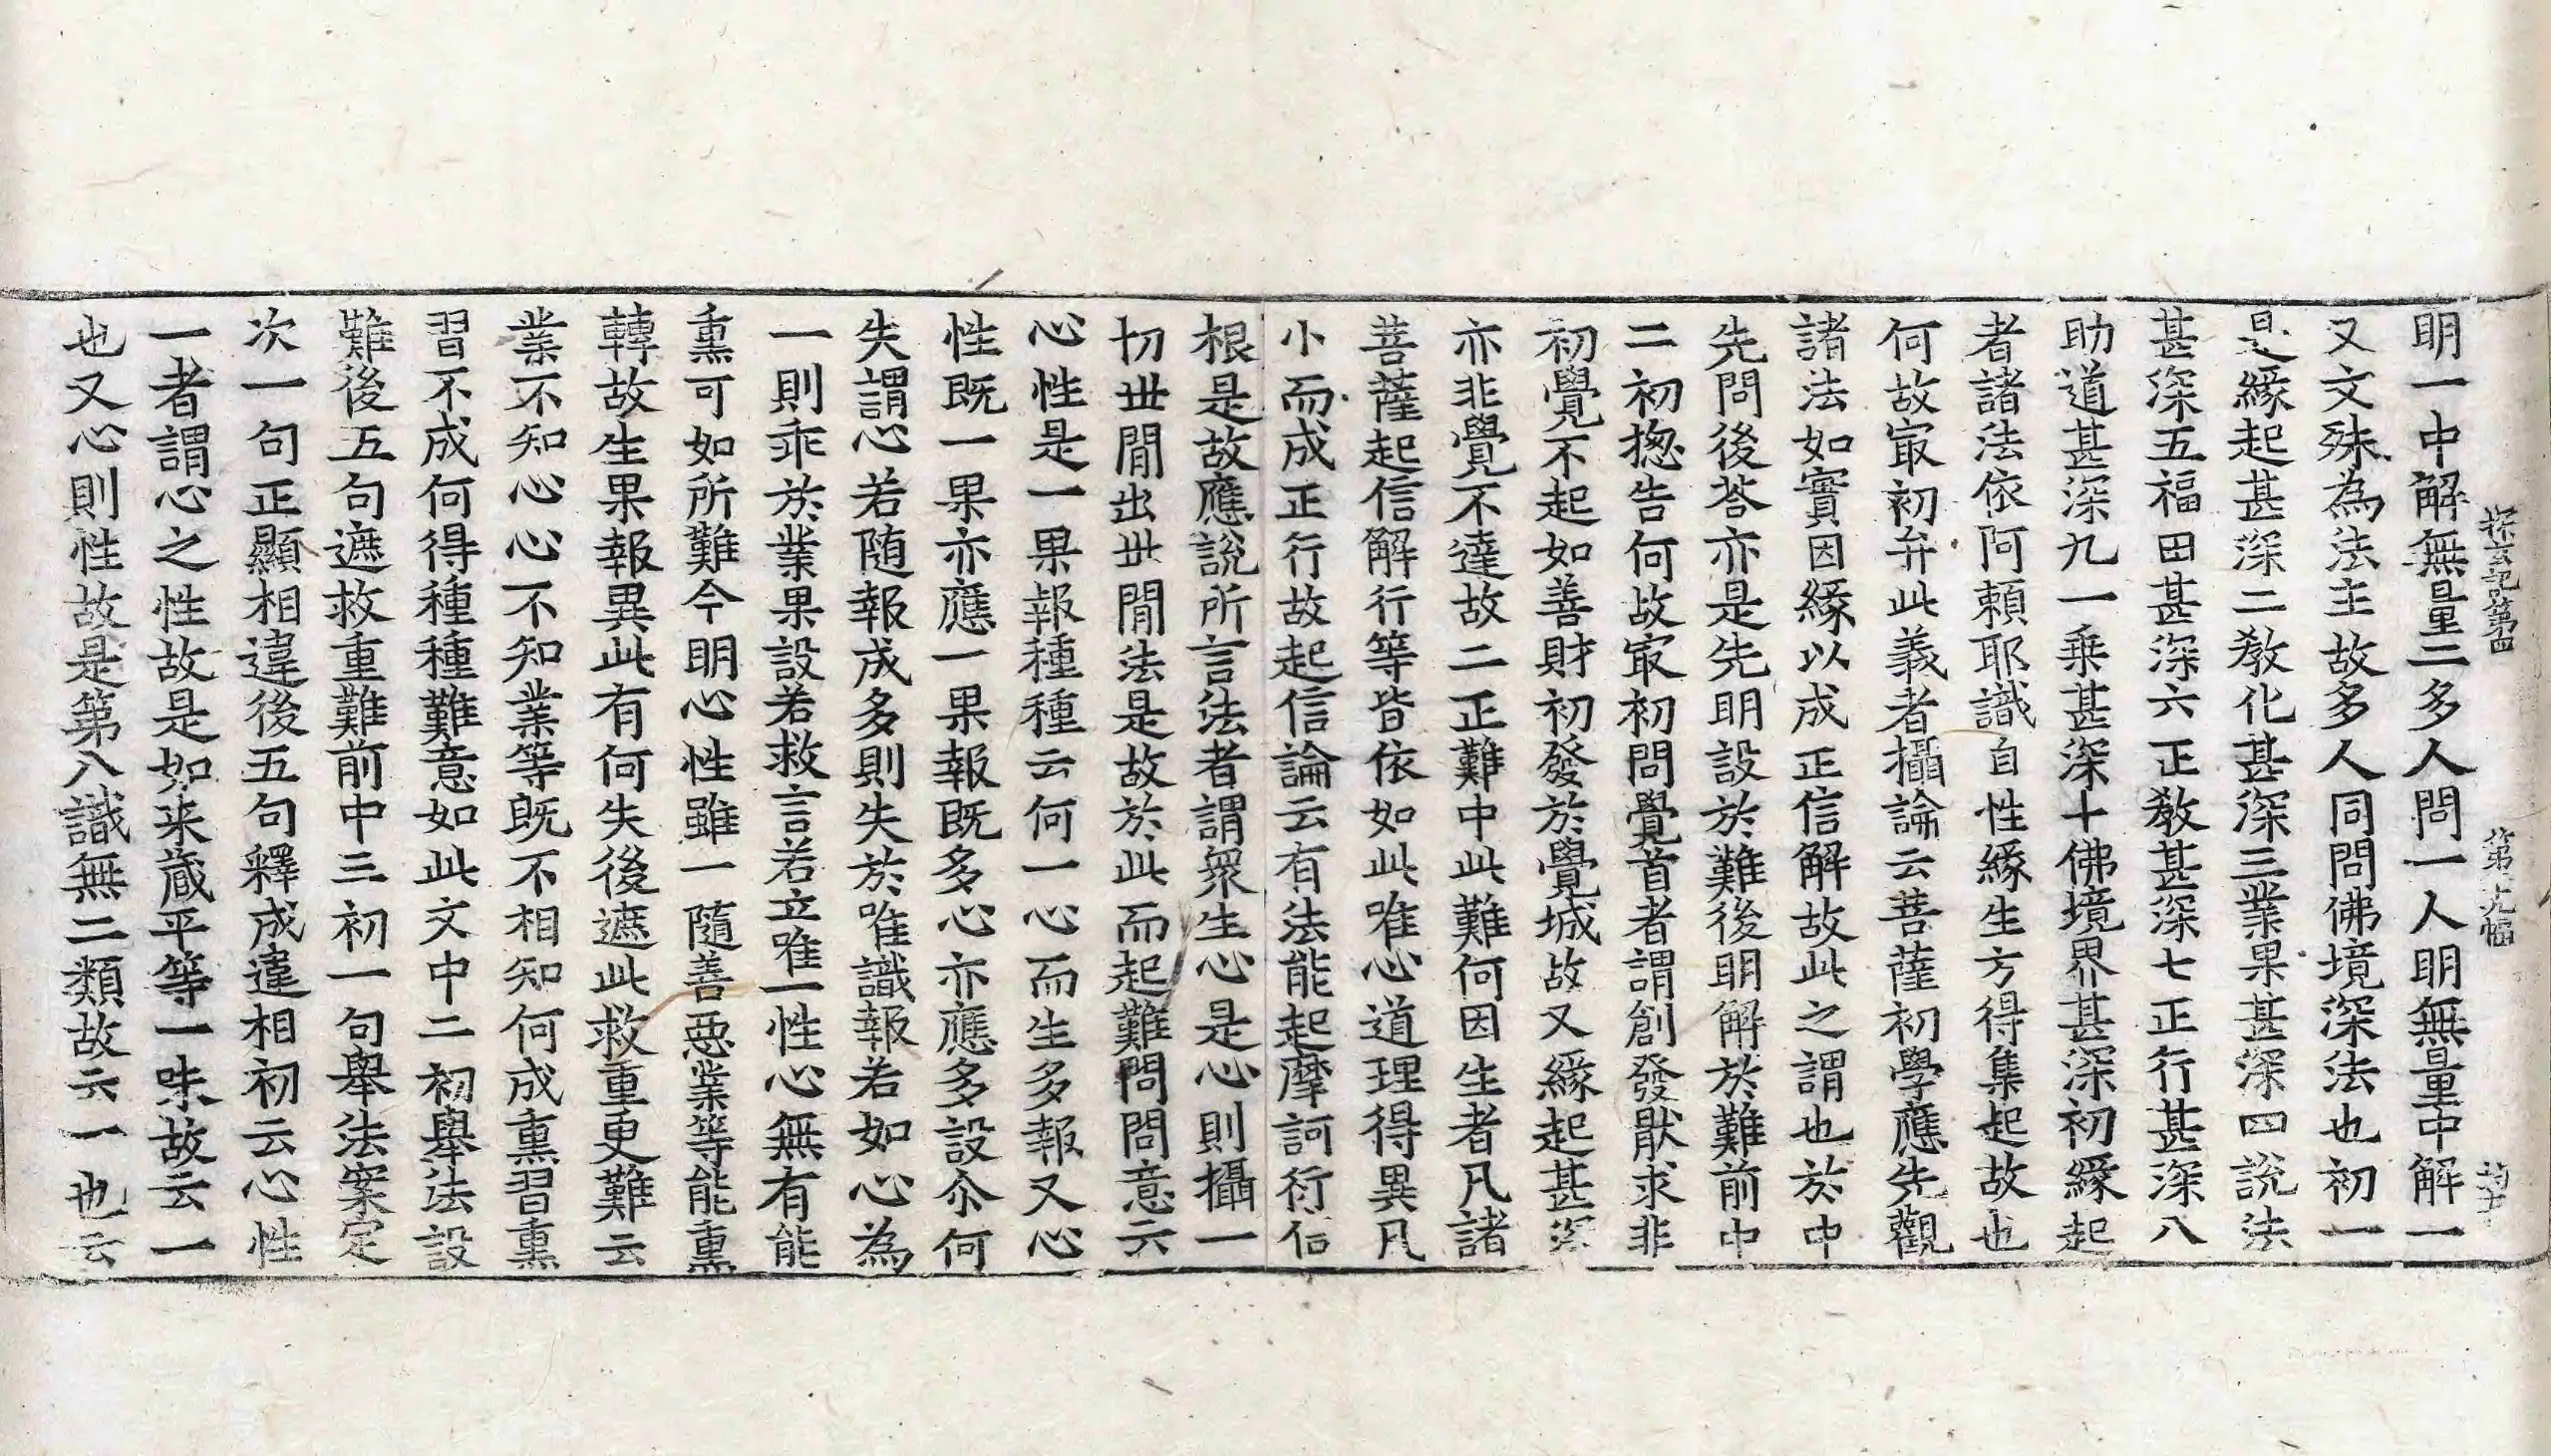 探玄記第四 第十九幅
明一中解無量二多人問一人明無量中解一
又文殊為法主故多人同問佛境深法也初一
是緣起甚深二教化甚深三業果甚深四說法
甚深五福田甚深六正教甚深七正行甚深八
助道甚深九一乗甚深十佛境界甚深初緣起
者諸法依阿賴耶識自性緣生方得集起故也
何故㝡初弁此義者攝論云菩薩初學應先觀
諸法如實因緣以成正信解故此之謂也於中
先問後荅亦是先明設於難後明解於難前中
二初揔告何故㝡初問覺首者謂創發猒求非
初覺不起如善財初發於覺城故又緣起甚深
亦非覺不達故二正難中此難何因生者凡諸
菩薩起信解行等皆依如此唯心道理得異凡
小而成正行故起信論云有法能起摩訶衍信
根是故應說所言法者謂衆生心是心則攝一
切丗閒出丗閒法是故於此而起難問問意云
心性是一果報種種云何一心而生多報又心
性既一果亦應一果報既多心亦應多設尒何
失謂心若随報成多則失於唯識報若如心為
一則乖於業果設若救言若立唯一性心無有能
熏可如所難今明心性雖一隨善惡業等能熏
轉故生果報異此有何失後遮此救重更難云
業不知心心不知業等既不相知何成熏習熏
習不成何得種種難意如此文中二初舉法設
難後五句遮救重難前中三初一句舉法案定
次一句正顯相違後五句釋成違相初云心性
一者謂心之性故是如来蔵平等一味故云一
也又心則性故是第八識無二類故云一也云